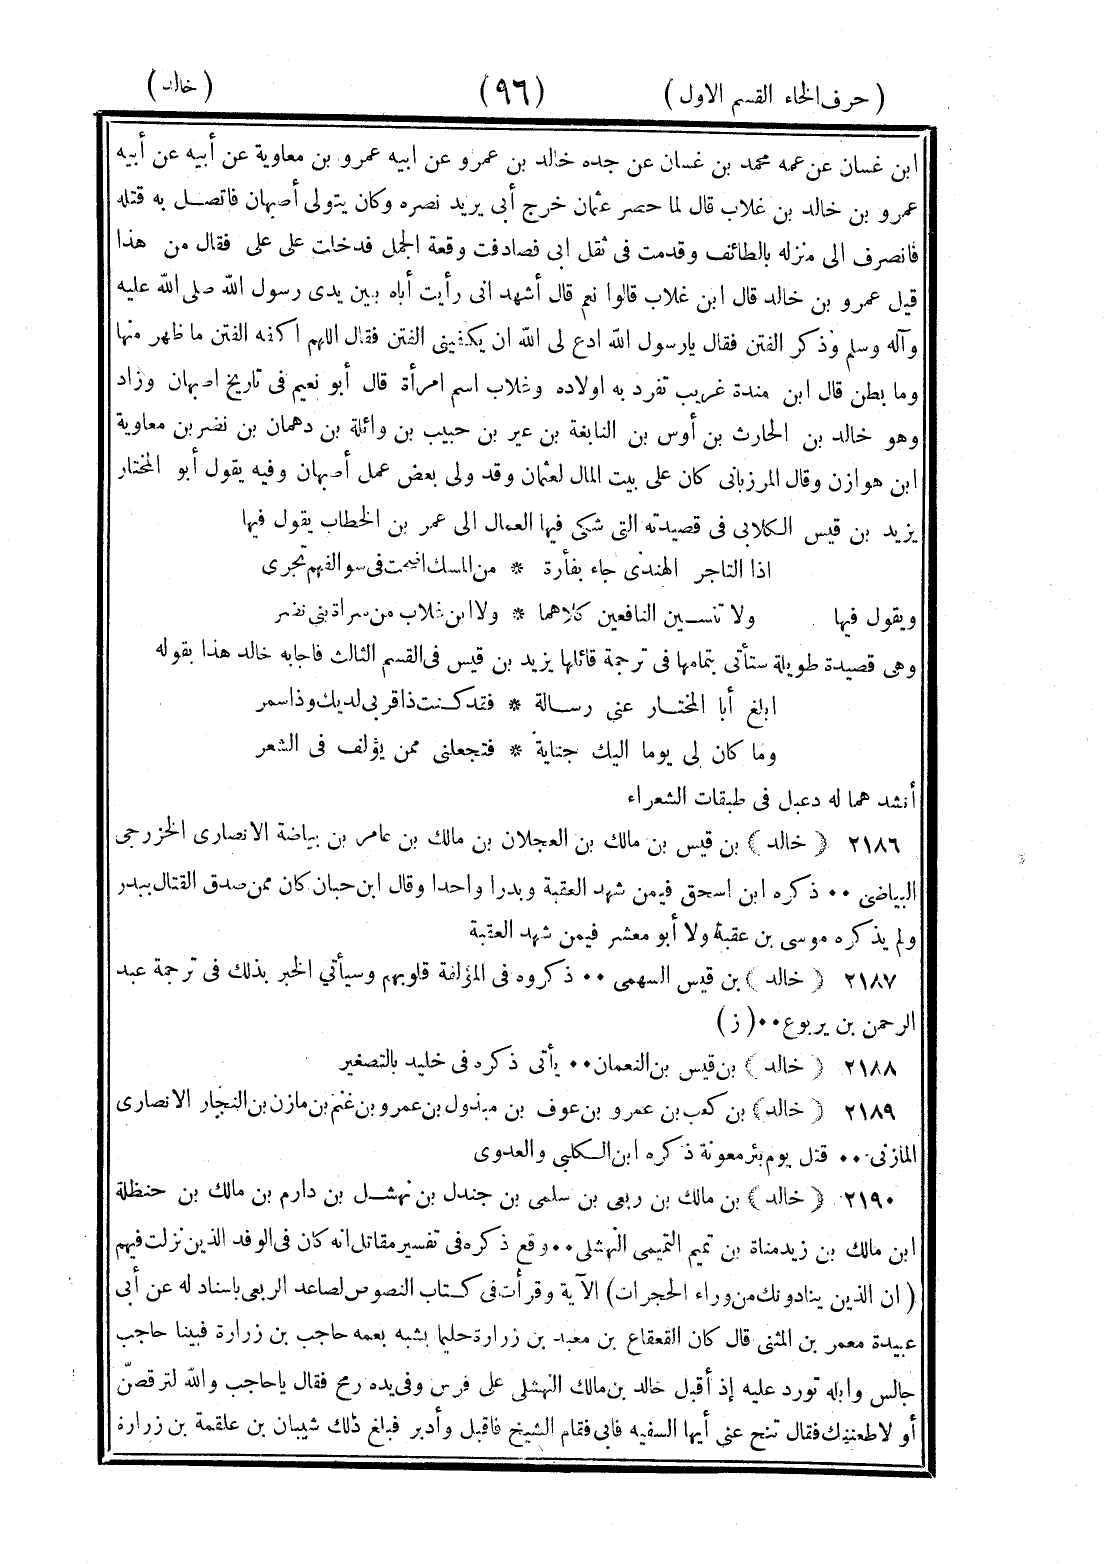 ( حرف الخاء القسم الاول )
(٩٦)
( خالد )
ابن غسان عن عمه محمد بن غسان عن جده خالد بن عمرو عن ابيه عمرو بن معاوية عن أبيه عن أبيه
عمرو بن خالد بن غلاب قال لما حصر عثمان خرج أبى يريد نصره وكان يتولى أصبهان فاتصل به قتله
فانصرف الى منزله بالطائف وقدمت فى ثقل ابى فصادفت وقعة الجمل فدخلت على على فقال من هذا
قيل عمرو بن خالد قال ابن غلاب قالوا نعم قال أشهد انى رأيت أباه بين يدى رسول الله صلى الله عليه
وآله وسلم وذكر الفتن فقال يارسول الله ادع لى الله ان يكفينى الفتن فقال اللهم اكفه الفتن ما ظهر منها
وما بطن قال ابن مندة غريب تفرد به اولاده وغلاب اسم امرأة قال أبو نعيم فى تاريخ اصبهان وزاد
وهو خالد بن الحارث بن أوس بن النابغة بن عير بن حبيب بن وائلة بن دهمان بن نضر بن معاوية
ابن هوازن وقال المرزبانى كان على بيت المال لعثمان وقد ولى بعض عمل أصبهان وفيه يقول أبو المختار
يزيد بن قيس الكلابى فى قصيدته التى شكى فيها العمال الى عمر بن الخطاب يقول فيها
اذا التاجر الهندى جاء بفأرة * من المسك اضحت فى سوالفهم تجرى
ويقول فيها ولا تنسين النافعين كلاهما * ولا ابن غلاب من سراة بنى نضر
وهى قصيدة طويلة ستأتى بتمامها فى ترجمة قائلها يزيد بن قيس فى القسم الثالث فاجابه خالد هذا بقوله
ابلغ أبا المختار عنى رسالة * فقد كنت ذا قربى لديك وذا سمر
وما كان لى يوما اليك جناية * فتجعلنى ممن يؤلف فى الشعر
أنشد هما له دعبل فى طبقات الشعراء
٢١٨٦ ( خالد ) بن قيس بن مالك بن العجلان بن مالك بن عامر بن بياضة الانصارى الخزرجى
البياضى ٠٠ ذكره ابن اسحق فيمن شهد العقبة وبدرا واحدا وقال ابن حبان كان ممن صدق القتال ببدر
ولم يذكره موسى بن عقبة ولا أبو معشر فيمن شهد العقبة
٢١٨٧ ( خالد ) بن قيس السهمى ٠٠ ذكروه فى المؤلفة قلوبهم وسيأتي الخبر بذلك فى ترجمة عبد
الرحمن بن يربوع ٠٠ ( ز )
٢١٨٨ ( خالد ) بن قيس بن النعمان ٠٠ يأتى ذكره فى خليد بالتصغير
٢١٨٩ ( خالد ) بن كعب بن عمرو بن عوف بن مبذول بن عمرو بن غنم بن مازن بن النجار الانصارى
المازنى ٠٠ قتل يوم بئر معونة ذكره ابن الكلبى والعدوى
٢١٩٠ ( خالد ) بن مالك بن ربعى بن سلمى بن جندل بن نهشل بن دارم بن مالك بن حنظلة
ابن مالك بن زيدمناة بن تميم التميمى النهشلى ٠٠ وقع ذكره فى تفسير مقاتل انه كان فى الوفد الذين نزلت فيهم
( ان الذين ينادونك من وراء الحجرات ) الآية وقرأت فى كتاب النصوص لصاعد الربعى باسناد له عن أبى
عبيدة معمر بن المثنى قال كان القعقاع بن معبد بن زرارة حليما يشبه بعمه حاجب بن زرارة فبينا حاجب
جالس وابله تورد عليه إذ أقبل خالد بن مالك النهشلى على فرس وفى يده رمح فقال ياحاجب والله لترقصنّ
أو لاطعننك فقال تنح عنى أيها السفيه فابى فقام الشيخ فاقبل وأدبر فبلغ ذلك شيبان بن علقمة بن زرارة